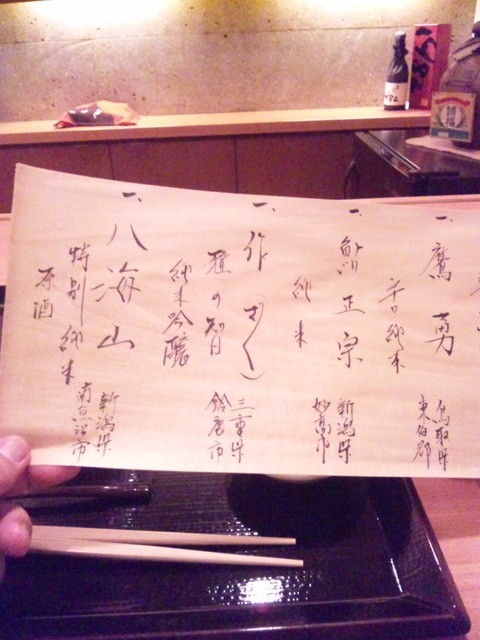 一、鷹勇
辛口純米
鳥取県
東伯郡
一、鮎正宗
純米
新潟県
妙高市
一、作(ざく)
雅の智
純米吟醸
三重県
鈴鹿市
一、八海山
特別純米
原酒
新潟県
南魚沼市